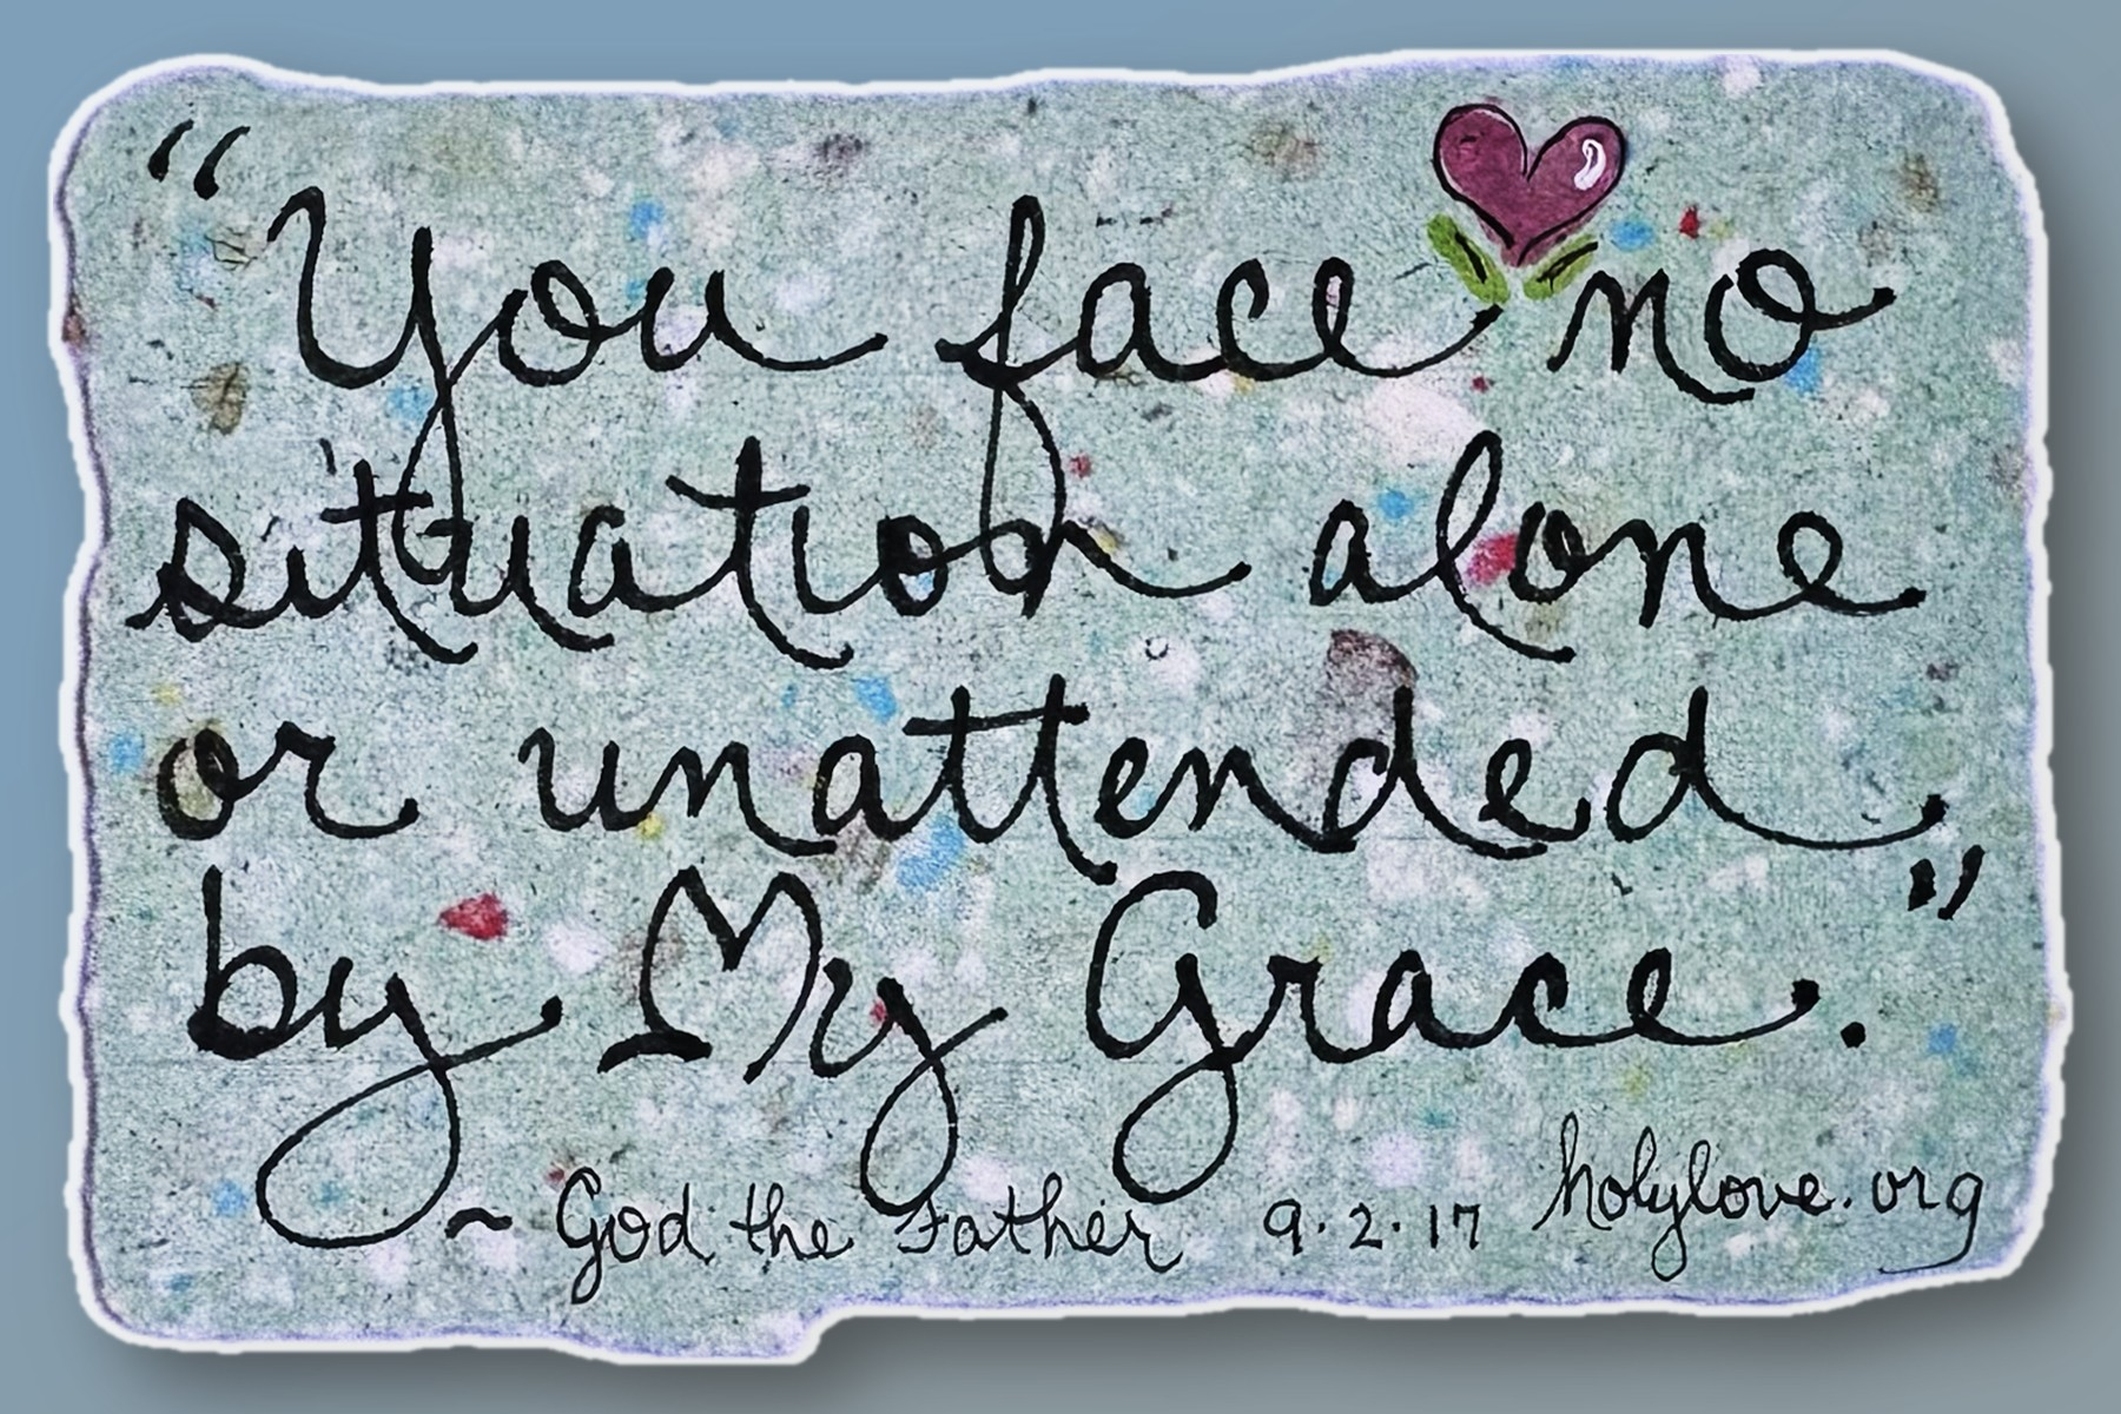 “You face no
situation alone
or unattended
by My Grace.”
~ God the Father 9.2.17 holylove.org